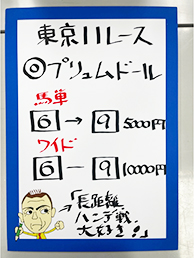 東京11レース
◎プリュムドール
馬単
6→9 5000円
ワイド
6－9 10000円
「長距離
ハンデ戦、
大好き!」